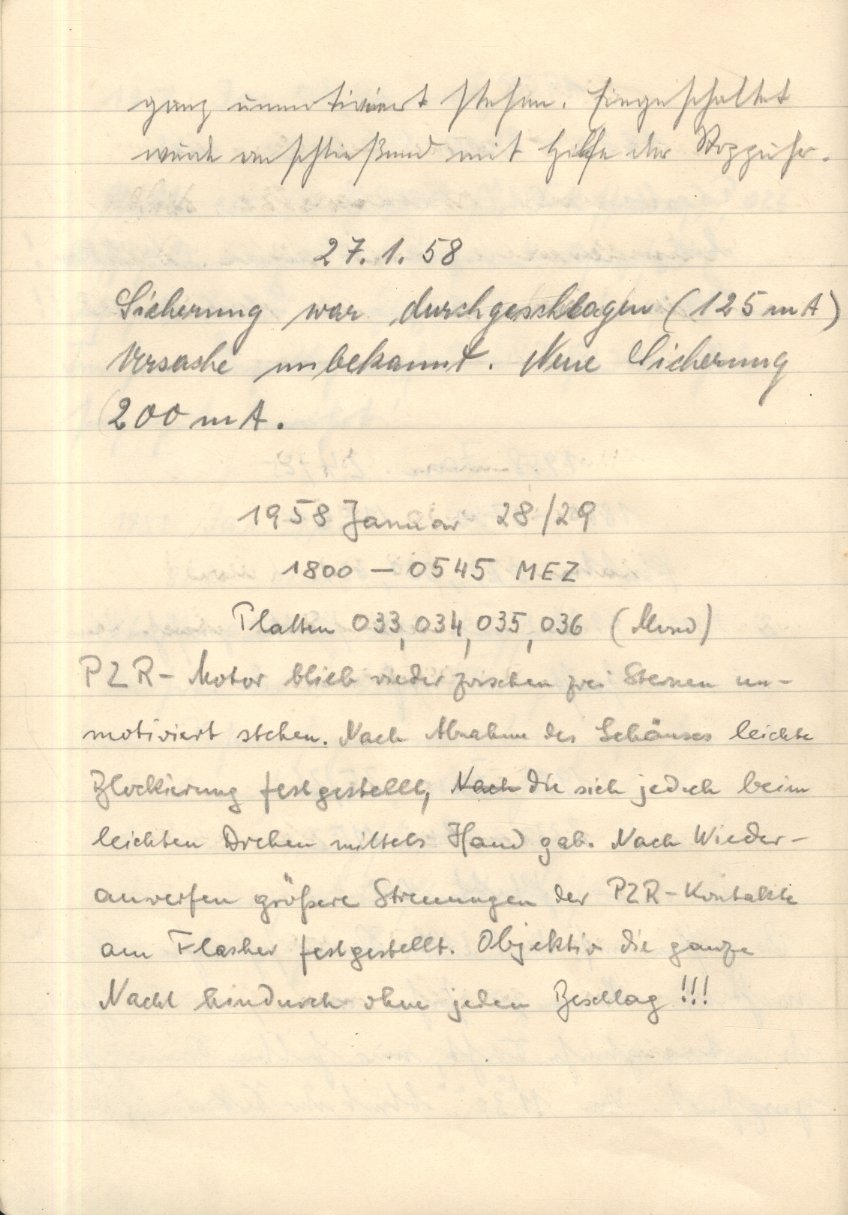 ganz unmotiviert stehen. Eingeschaltet
wurde anschließend mit Hilfe der Stoppuhr.
27.1.58
Sicherung war durchgeschlagen (125 mA)
Ursache unbekannt. Neue Sicherung
200 mA.
1958 Januar 28/29
1800 — 0545 MEZ
Platten 033, 034, 035, 036 (Mond)
PZR-Motor blieb wieder zwischen zwei Sternen un-
motiviert stehen. Nach Abnahme des Gehäuses leichte
Blockierung festgestellt, Nach die sich jedoch beim
leichten Drehen mittels Hand gab. Nach Wieder-
anwerfen größere Streuungen der PZR-Kontakte
am Flasher festgestellt. Objektiv die ganze
Nacht hindurch ohne jeden Beschlag!!!